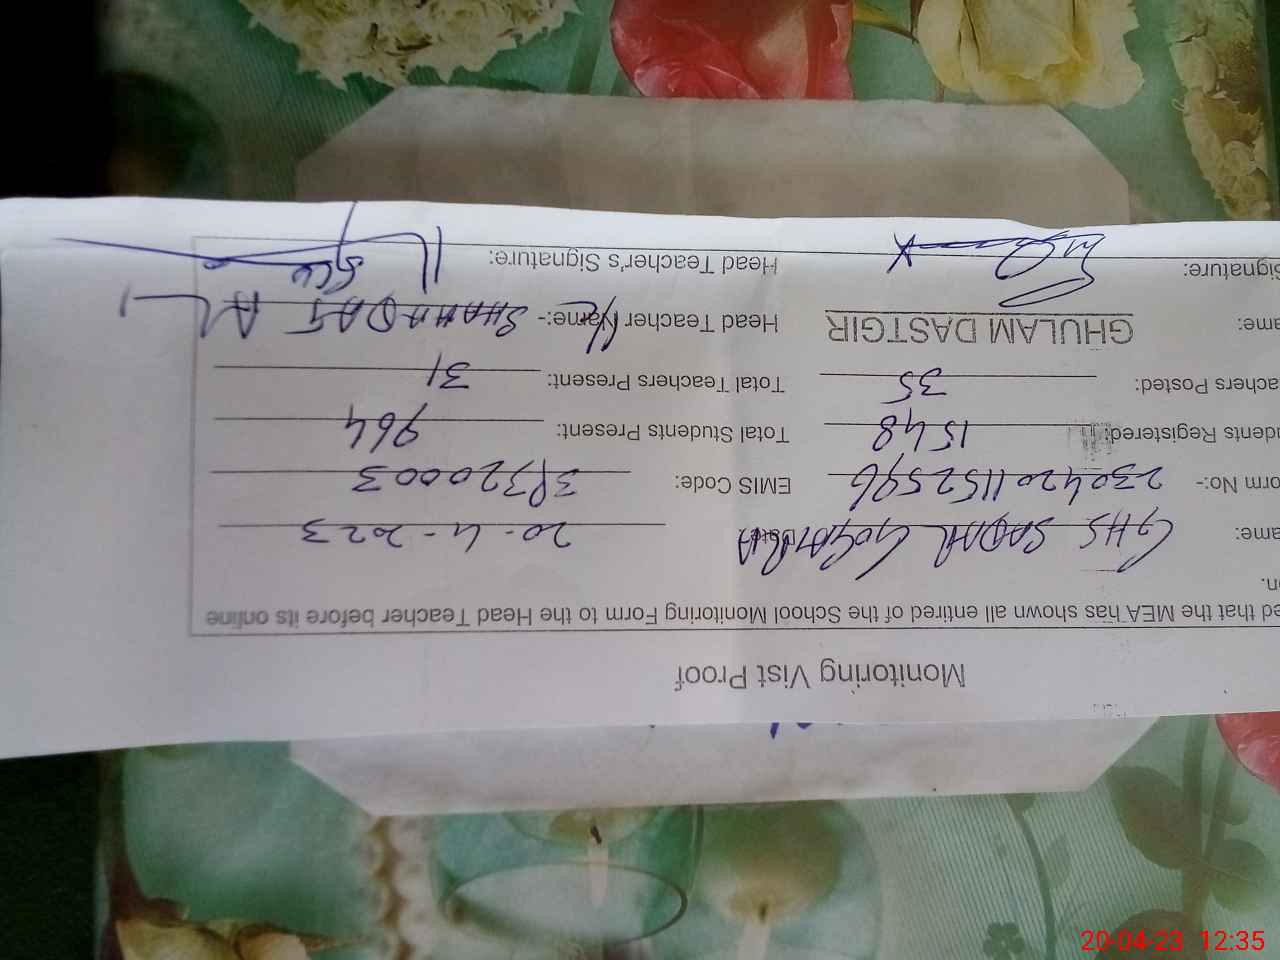 Monitoring Vist Proof
ed that the MEA has shown all entired of the School Monitoring Form to the Head Teacher before its online
on.
ame: GHS SADAR GOGARA Date 20-4-2023
orm No:- 2304201152596 EMIS Code: 31320003
dents Registered: 1548 Total Students Present: 964
achers Posted: 35 Total Teachers Present: 31
ame: GHULAM DASTGIR Head Teacher Name:- SHAHADAT ALI
Signature: Head Teacher's Signature:
20-04-23 12:35